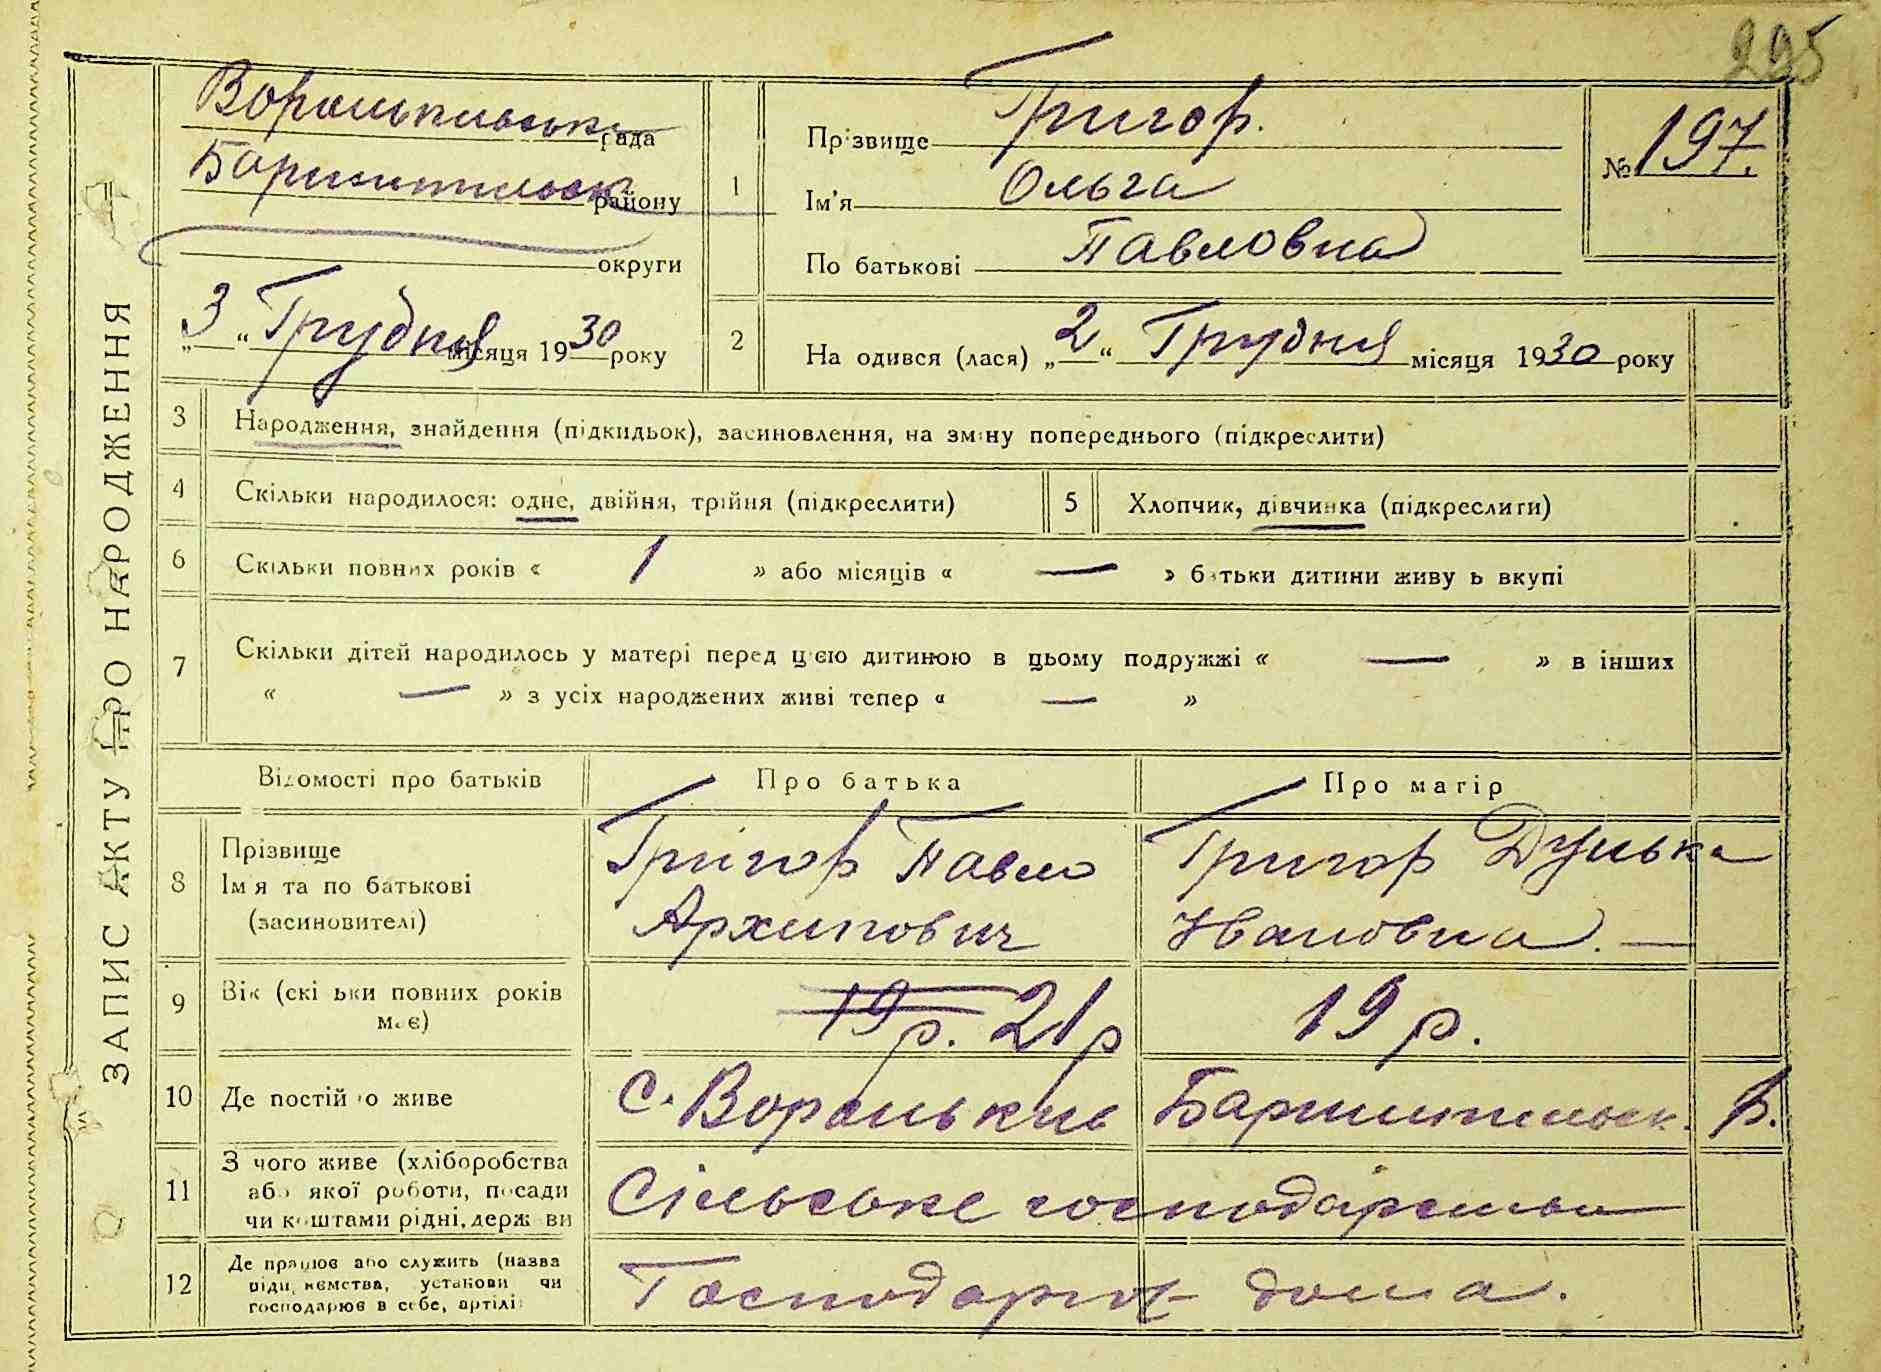 295
ЗАПИС АКТУ ПРО НАРОДЖЕННЯ
Вороньківська рада
Бориспільськ району
округи
„3“ Грудня місяця 1930 року
1
Прізвище Григор.
Ім'я Ольга
По батькові Павловна
№ 197.
2
На одився (лася) „2“ Грудня місяця 1930 року
3 Народження, знайдення (підкидьок), засиновлення, на зміну попереднього (підкреслити)
4 Скільки народилося: одне, двійня, трійня (підкреслити) 5 Хлопчик, дівчинка (підкреслити)
6 Скільки повних років « 1 » або місяців « — » батьки дитини живу ь вкупі
7 Скільки дітей народилось у матері перед цією дитиною в цьому подружжі « — » в інших
« — » з усіх народжених живі тепер « — »
Відомості про батьків Про батька Про матір
8 Прізвище
Ім я та по батькові
(засиновителі)
Григор Павло
Архипович
Григор Дунька
Ивановна. —
9 Вік (скі ьки повних років
має)
19 р. 21 р
19 р.
10 Де постій о живе С. Вороньків Бориспільськ. Р.
11 З чого живе (хліборобства
або якої роботи, посади
чи коштами рідні, держ ви
Сільське господарство
12 Де працює або служить (назва
підп ємства, установи чи
господарює в себе, артілі
Господарют дома.